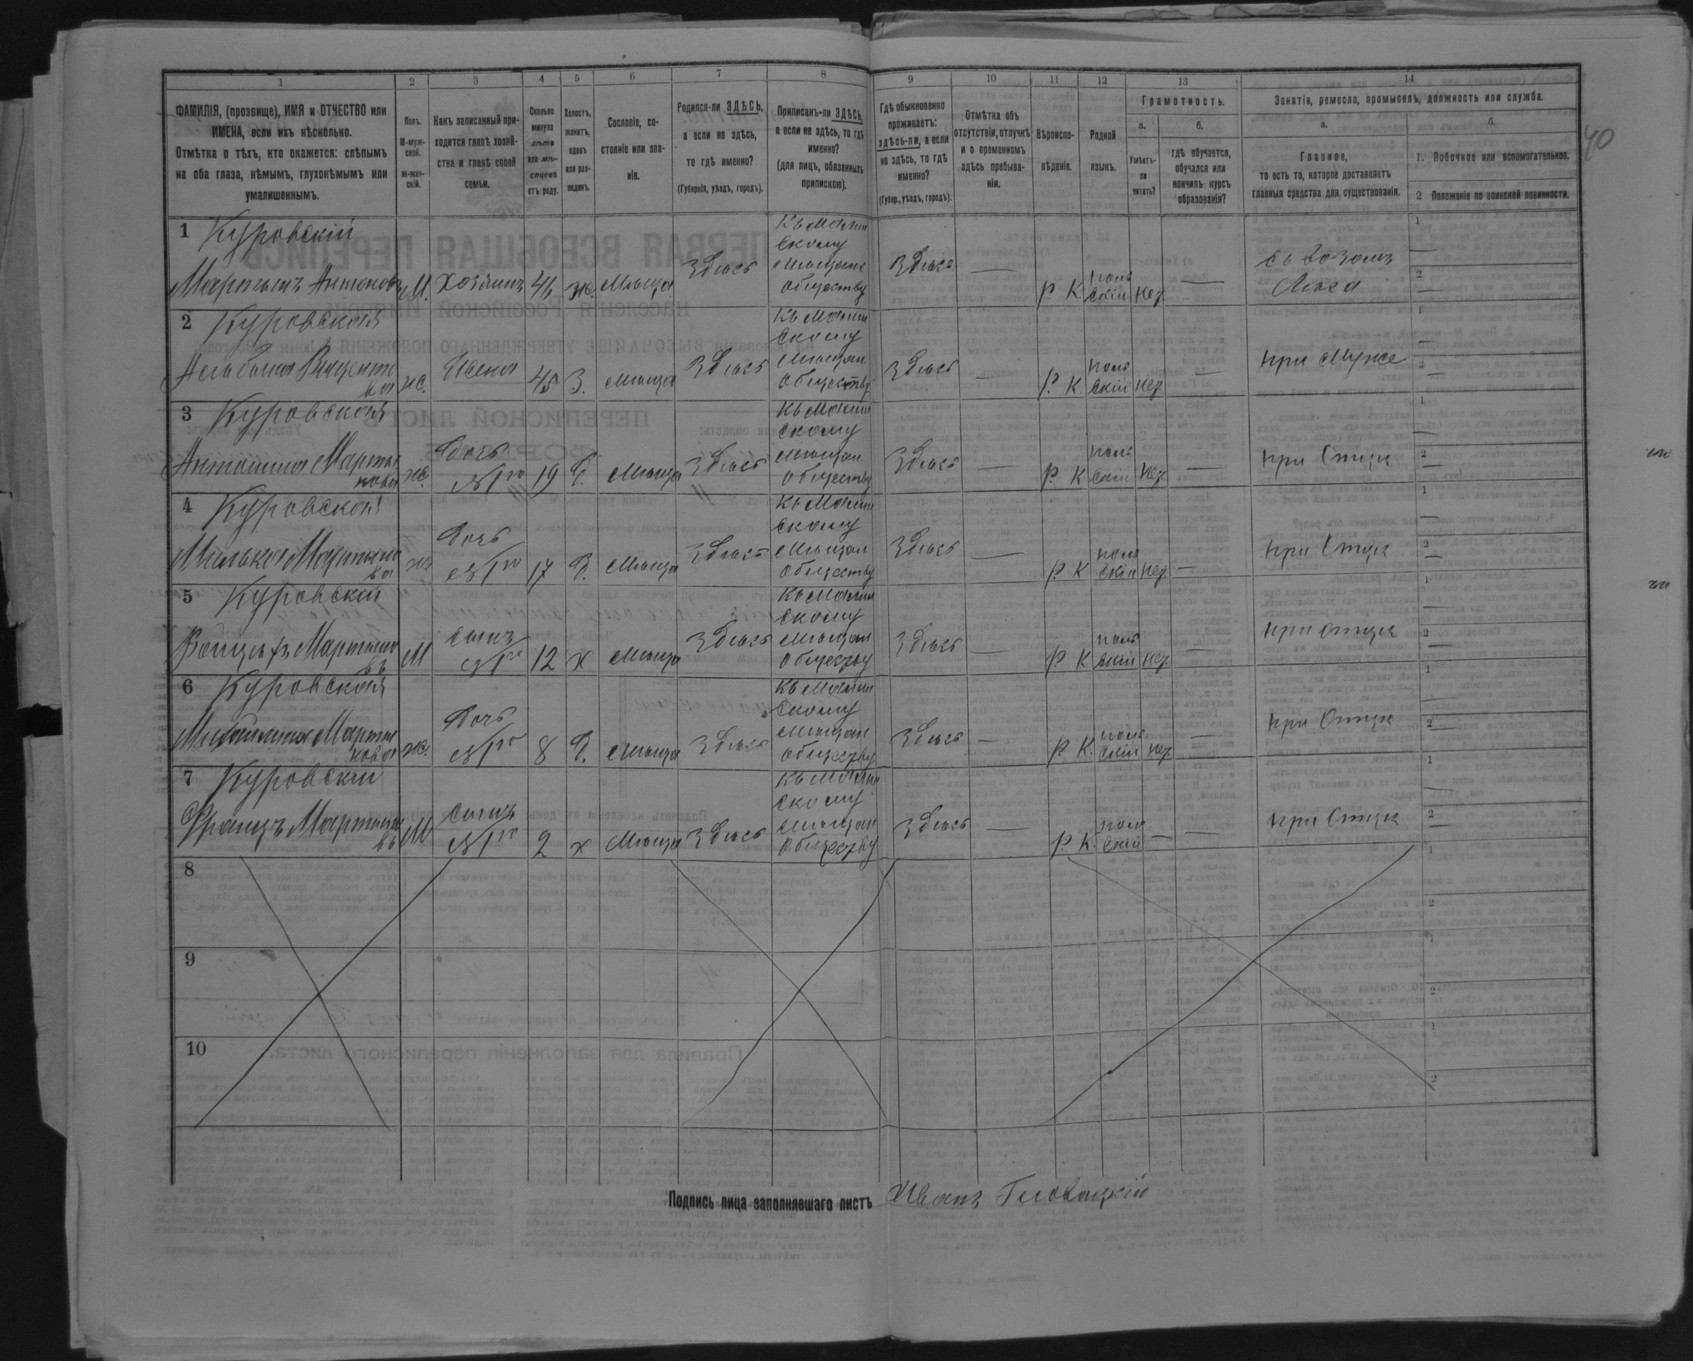 1 2 3 4 5 6 7 8 9 10 11 12 13 14
ФАМИЛІЯ, (прозвище), ИМЯ и ОТЧЕСТВО или
ИМЕНА, если ихъ нѣсколько.
Отмѣтка о тѣхъ, кто окажется: слѣпымъ
на оба глаза, нѣмымъ, глухонѣмымъ или
умалишоннымъ.
Полъ.
М-муж-
ской.
ж-жен-
скій.
Какъ записанный при-
ходится главѣ хозяй-
ства и главѣ своей
семьи.
Сколько
минуло
лѣтъ
или мѣ-
сяцевъ
отъ роду.
Холостъ,
женатъ,
вдовъ
или раз-
веденъ.
Сословіе, со-
стояніе или зва-
ніе.
Родился-ли ЗДѢСЬ,
а если не здѣсь,
то гдѣ именно?
(Губернія, уѣздъ, городъ).
Приписанъ-ли ЗДѢСЬ,
а если не здѣсь, то гдѣ
именно?
(для лицъ, обязанныхъ
припискою).
Гдѣ обыкновенно
проживаетъ:
здѣсь-ли, а если
не здѣсь, то гдѣ
именно?
(Губер., уѣздъ, городъ).
Отмѣтка объ
отсутствіи, отлучкѣ
и о временномъ
здѣсь пребыва-
ніи.
Вѣроиспо-
вѣданіе.
Родной
языкъ.
Грамотность.
а.
Умѣетъ-
ли
читать?
б.
гдѣ обучается,
обучался или
кончилъ курсъ
образованія?
Занятія, ремесло, промыселъ, должность или служба.
а.
Главное,
то есть то, которое доставляетъ
главныя средства для существованія.
б.
1. Побочное или вспомогательное.
2 Положеніе по воинской повинности.
40
1 Куровскій
Мартынъ Антоновъ
М. Хозяинъ 45 ж. Мѣща
Здѣсь
Къ
скому
мѣщанс
обществу
Здѣсь — Р К поль
скій нер —
съ возомъ
лѣса
1 — 2 —
2 Куровская
ва
ж. Жена 45 З. мѣща
Здѣсь
Къ
скому
мѣщан
обществу
Здѣсь — Р. К поль
скій нер —
при мужѣ
1 — 2 —
3 Куровская
Антонина Марты
нова
ж. дочь
19 Д. мѣща
Здѣсь
Къ
скому
мѣщан
обществу
Здѣсь — Р. К поль
скій нер —
при Отцѣ
1 — 2 —
4 Куровская
Мартыно
ва
ж. дочь
17 Д. мѣща
Здѣсь
Къ
скому
мѣщан
обществу
Здѣсь — Р. К поль
скій нер —
при Отцѣ
1 — 2 —
5 Куровскій
Войцехъ Мартыно
въ
М сынъ
12 х мѣща
Здѣсь
Къ
скому
мѣщан
обществу
Здѣсь — Р К поль
скій нер —
при отцѣ
1 — 2 —
6 Куровская
Марты
нова
ж. дочь
8 Д. мѣща
Здѣсь
Къ
скому
мѣщан
обществу
Здѣсь — Р К поль
скій нер —
при Отцѣ
1 — 2 —
7 Куровскій
Францъ Мартыно
въ
М сынъ
2 х мѣща
Здѣсь
Къ
скому
мѣщан
обществу
Здѣсь — Р К поль
скій — —
при Отцѣ
1 — 2 —
8 1 2
9 1 2
10 1 2
Подпись лица заполнявшаго листъ Иванъ